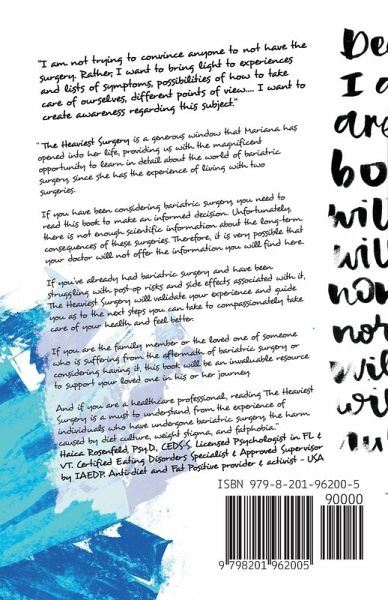 "I am not trying to convince anyone to not have the
surgery. Rather, I want to bring light to experiences
and lists of symptoms, possibilities of how to take
care of ourselves, different points of view.... I want to
create awareness regarding this subject."
"The Heaviest Surgery is a generous window that Mariana has
opened into her life, providing us with the magnificent
opportunity to learn in detail about the world of bariatric
surgery, since she has the experience of living with two
surgeries.
If you have been considering bariatric surgery, you need to
read this book to make an informed decision. Unfortunately,
there is not enough scientific information about the long-term
consequences of these surgeries. Therefore, it is very possible that
your doctor will not offer the information you will find here.
If you've already had bariatric surgery and have been
struggling with post-op risks and side effects associated with it,
The Heaviest Surgery will validate your experience and guide
you as to the next steps you can take to compassionately take
care of your health and feel better.
If you are the family member or the loved one of someone
who is suffering from the aftermath of bariatric surgery or
considering having it, this book will be an invaluable resource
to support your loved one in his or her journey.
And if you are a healthcare professional, reading The Heaviest
Surgery is a must to understand from the experience of
individuals who have undergone bariatric surgery the harm
caused by diet culture, weight stigma, and fatphobia."
Haica Rosenfeld, PsyD, CEDS S. Licensed Psychologist in FL &
VT. Certified Eating Disorders Specialist & Approved Supervisor
by IAEDP. Anti-diet and Fat Positive provider & activist - USA
De
I a
are
bo
will
will
now
nor
wil
wil
ISBN 979-8-201-96200-5
90000
9 798201 962005